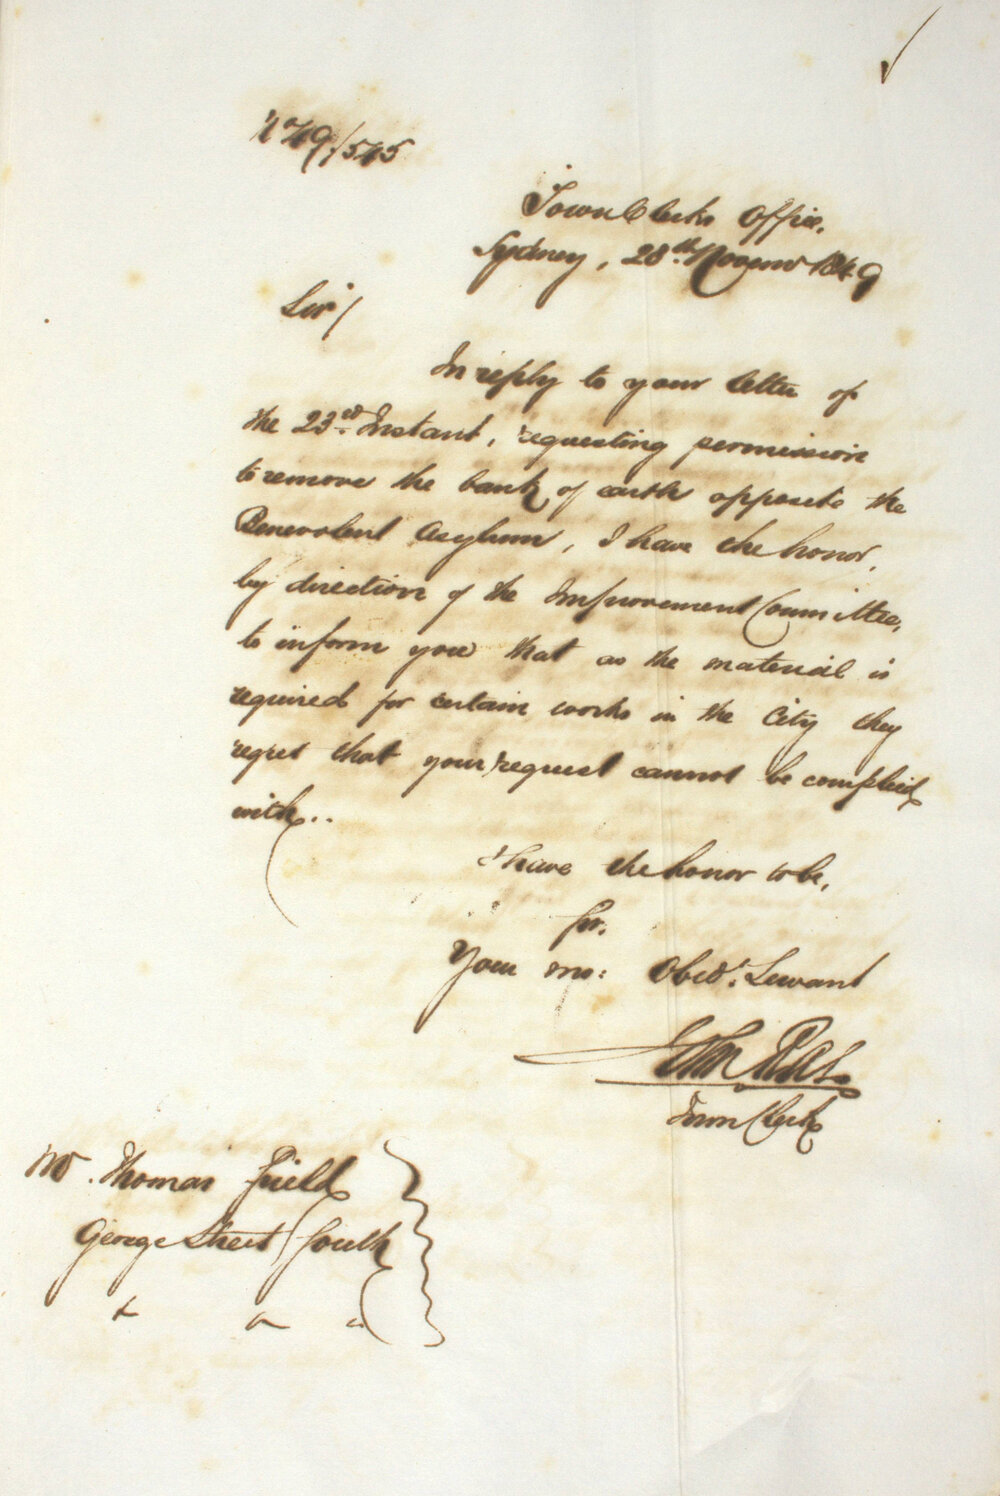 '49/545
Town Clerks Office,
Sydney, 28th Novemr 1849
Sir/
In reply to your letter of
the 23rd Instant, requesting permission
to remove the bank of earth opposite the
Benevolent Asylum, I have the honor,
by direction of the Improvement Committee,
to inform you that as the material is
required for certain works in the City they
regret that your request cannot be complied
with..
I have the honor to be,
Sir.
Your mo: Obedt. Servant
Town Clerk
Mr. Thomas Field
George Street South